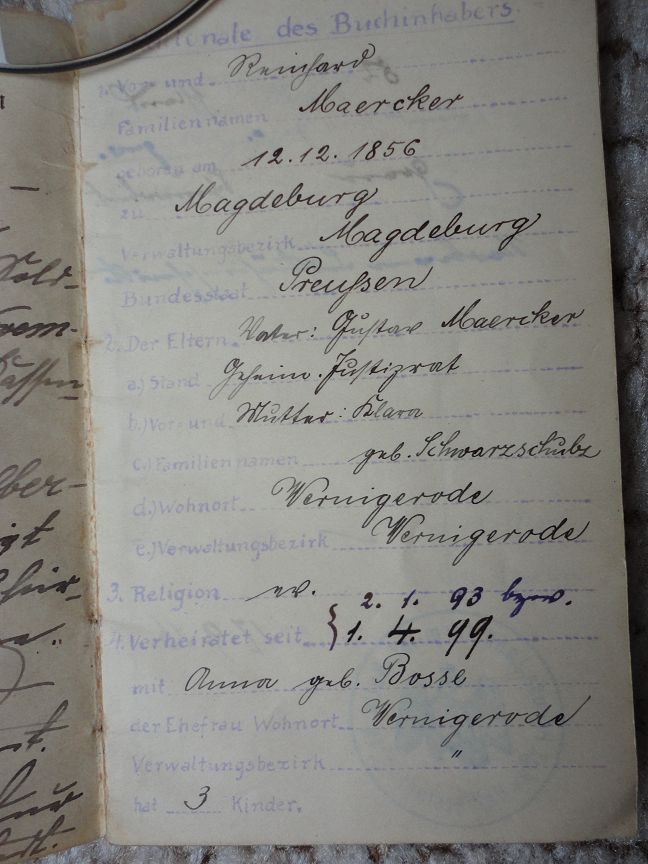 Nationale des Buchinhabers.
1. Vor- und Reinhard
Familiennamen Maercker
geboren am 12.12.1856
zu Magdeburg
Verwaltungsbezirk Magdeburg
Bundesstaat Preußen
2. Der Eltern Vater: Gustav Maercker
a.) Stand Geheim. Justizrat
b.) Vor- und Mutter: Klara
c.) Familiennamen geb. Schwarzschulz
d.) Wohnort Wernigerode
e.) Verwaltungsbezirk Wernigerode
3. Religion ev.
2. 1. 93 bzw.
4. Verheiratet seit 1. 4. 99.
mit Anna geb. Bosse
der Ehefrau Wohnort Wernigerode
Verwaltungsbezirk "
hat 3 Kinder.